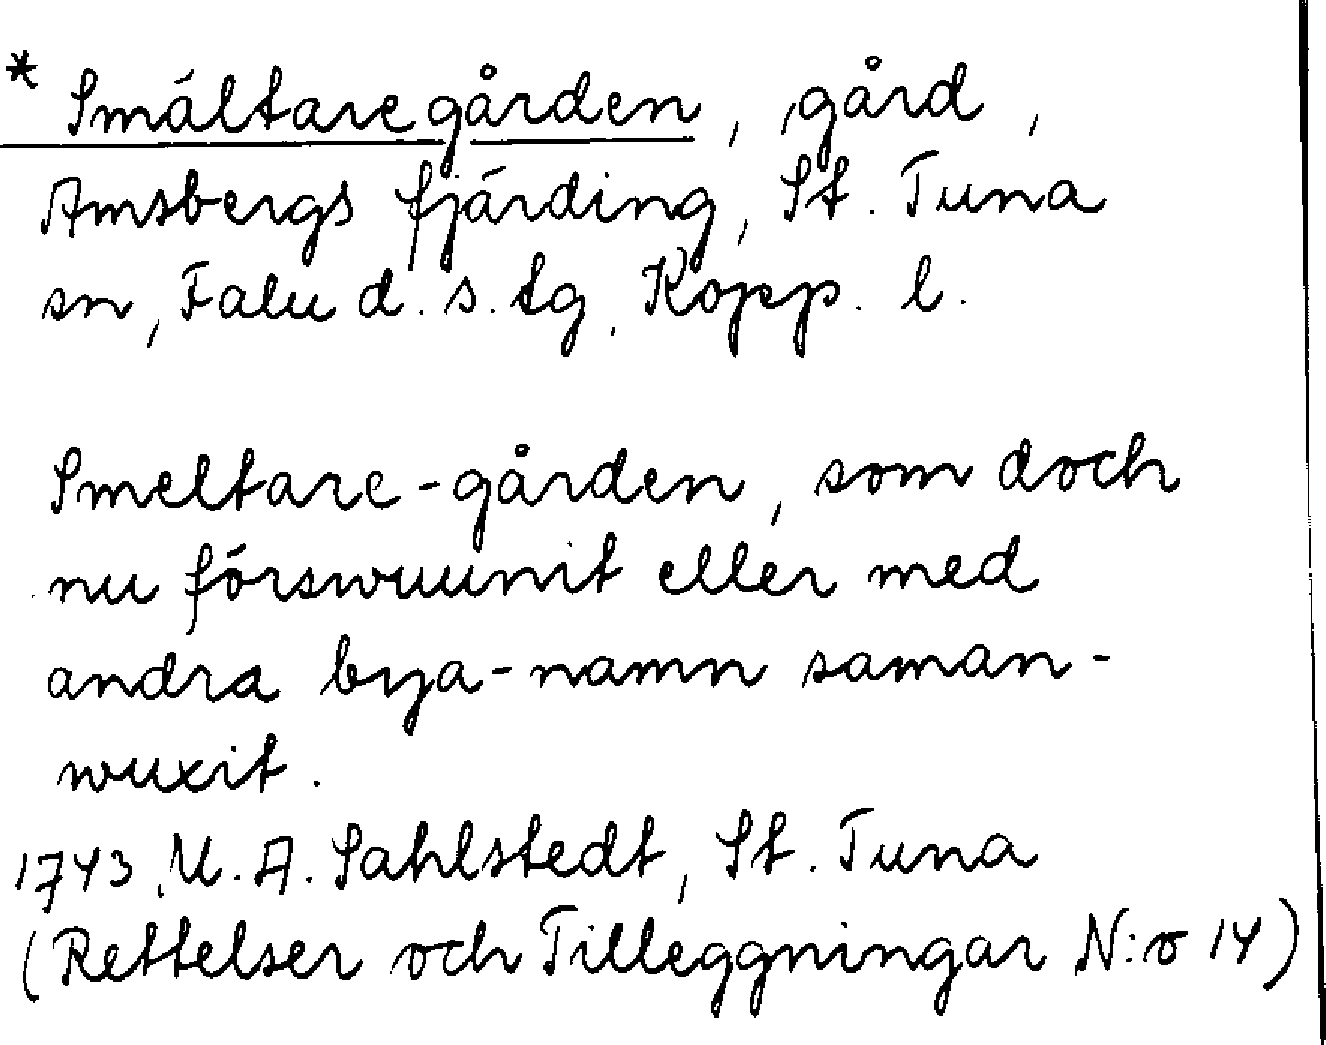 * Smältaregården, gård,
Amsbergs fjärding, St. Tuna
sn, Falu d. s. tg, Kopp. l.
Smeltare-gården, som doch
nu förswuunit eller med
andra bya-namn saman-
wuxit.
1743, U. A. Sahlstedt, St. Tuna
(Rettelser och Tilleggningar N:o 14)